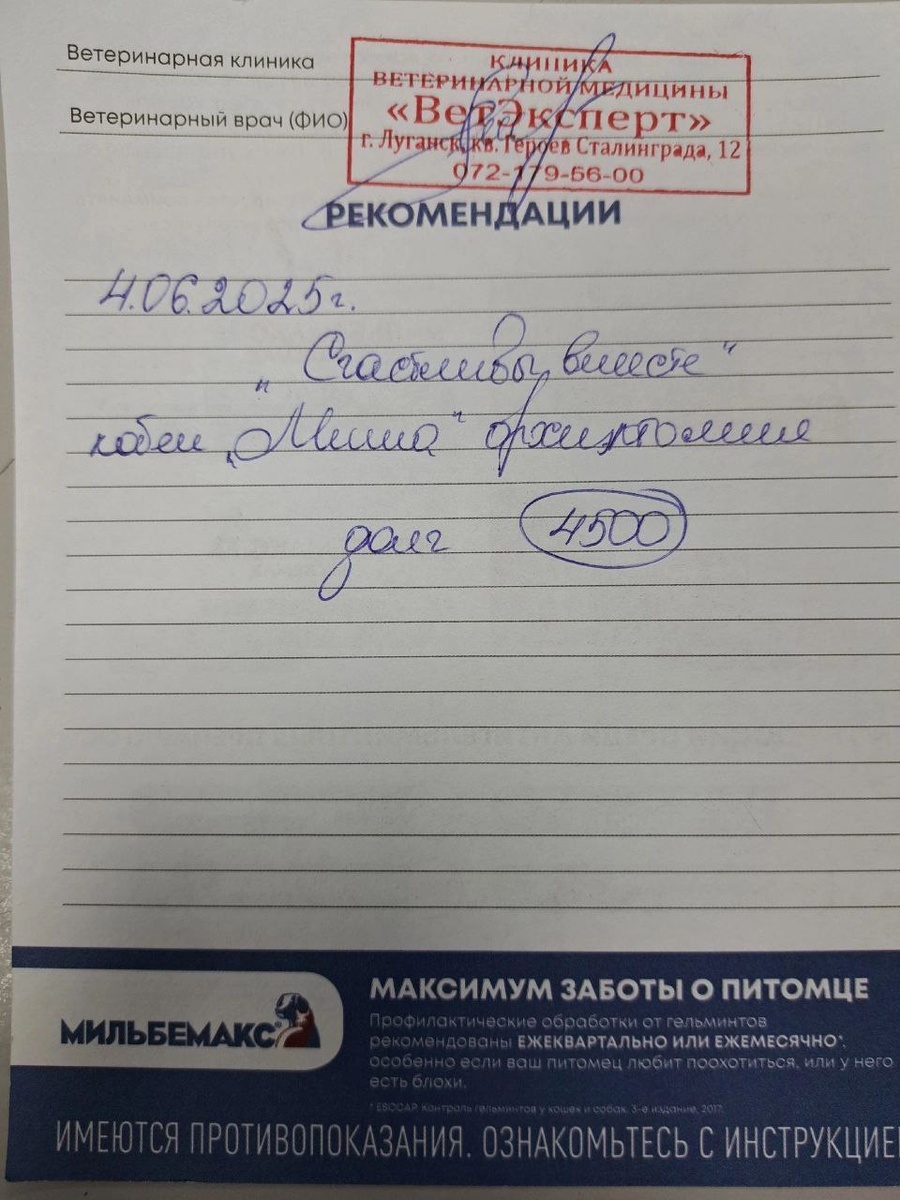 Ветеринарная клиника
Ветеринарный врач (ФИО)
КЛИНИКА
ВЕТЕРИНАРНОЙ МЕДИЦИНЫ
«ВетЭксперт»
г. Луганск, кв. Героев Сталинграда, 12
072-179-56-00
РЕКОМЕНДАЦИИ
4.06.2025г.
„Счастливы вместе"
кобель „Миша" орхиэктомия
долг 4500
МИЛЬБЕМАКС®
МАКСИМУМ ЗАБОТЫ О ПИТОМЦЕ
Профилактические обработки от гельминтов
рекомендованы ЕЖЕКВАРТАЛЬНО ИЛИ ЕЖЕМЕСЯЧНО*,
особенно если ваш питомец любит поохотиться, или у него
есть блохи.
* ESCCAP. Контроль гельминтов у кошек и собак. 3-е издание, 2017.
ИМЕЮТСЯ ПРОТИВОПОКАЗАНИЯ. ОЗНАКОМЬТЕСЬ С ИНСТРУКЦИЕ